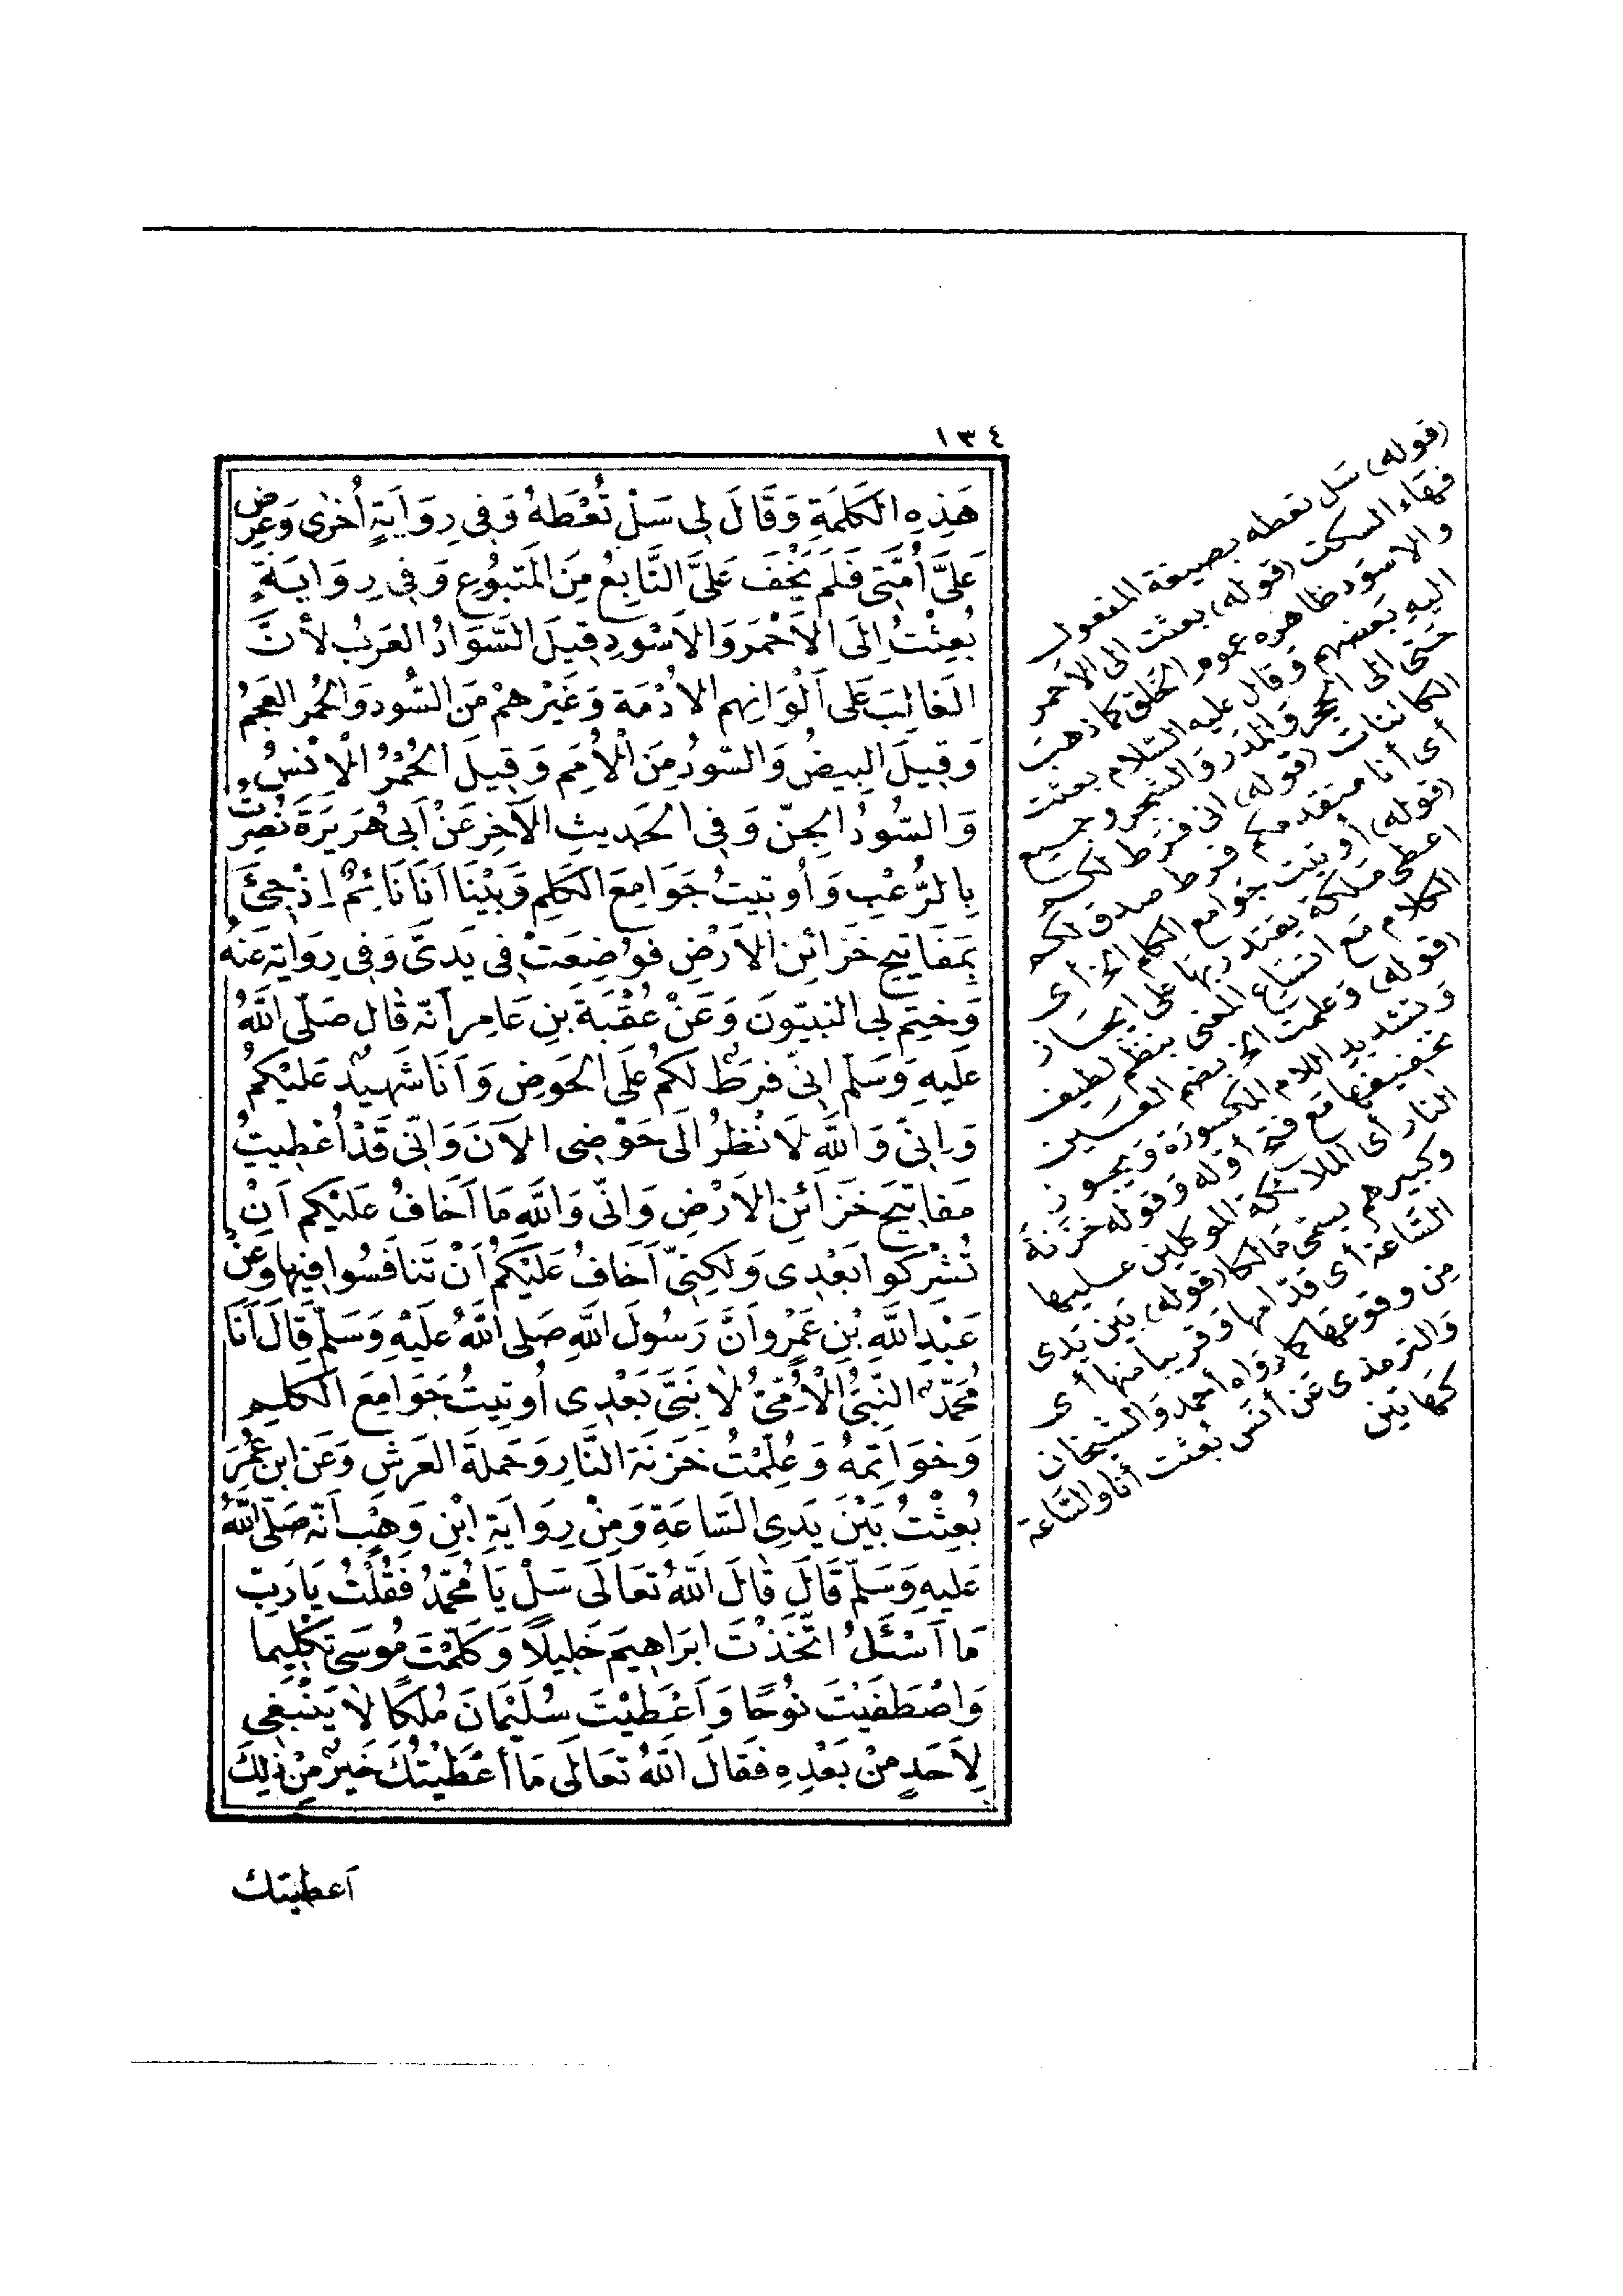 ١٣٤
هَذِهِ الكَلِمَةِ وَقَالَ لِى سَلْ تُعْطَهُ وَفِى رِوَايَةٍ أُخْرٰى وَعُرِضَ
عَلَىَّ أُمَّتِى فَلَمْ يَخْفَ عَلَىَّ التَّابِعُ مِنَ المَتْبُوعِ وَفِى رِوَايَةٍ
بُعِثْتُ إِلَى الأَحْمَرِ وَالأَسْوَدِ قِيلَ السَّوَادُ العَرَبُ لأَنَّ
الغَالِبَ عَلَى أَلْوَانِهِم الأُدْمَة وَغَيْرُهُمْ مَن السُّود وَالحُمر العَجَمُ
وَقِيلَ البِيضُ وَالسّودُ مِنَ الأُمَمِ وَقِيلَ الحُمْرُ الإِنْسُ
وَالسُّودُ الجِنّ وَفِى الحَدِيثِ الآخِرِ عَنْ أَبِى هُرَيرَةَ نُصِرْتُ
بِالرُّعْبِ وَأُوتِيتُ جَوَامِعَ الكَلِمِ وَبَيْنَا أَنَا نَائِمٌ إِذْ جِئَ
بِمَفَاتِيحِ خَزَائِنِ الأَرْضِ فَوُضِعَتْ فِى يَدَىَّ وَفِى رِوَايَة عَنْهُ
وَخُتِمَ بِى النبيّونَ وَعَنْ عُقْبَة بنِ عَامِر أَنّه قَالَ صَلّى اللَّهُ
عَلَيهِ وَسَلّم إِنِّى فَرَطٌ لَكُمْ عَلَى الحَوضِ وَأَنَا شَهِيدٌ عَلَيْكُمْ
وَإِنِّى وَاللَّهِ لَأَنْظُرُ إِلَى حَوْضِى الآنَ وَإِنِّى قَدْ أُعْطِيتُ
مَفَاتِيحَ خَزَائِنِ الأَرْضِ وَإِنِّى وَاللَّهِ مَا أَخَافُ عَلَيْكُم أَنْ
تُشْرِكُوا بَعْدِى وَلَكِنِّى أَخَافُ عَلَيْكُمْ أَنْ تَنَافَسُوا فِيهَا وَعَنْ
عَبْدِ اللَّهِ بْنِ عَمْرٍو أَنَّ رَسُولَ اللَّهِ صَلى اللَّهُ عَلَيْهِ وَسَلّمَ قَالَ أَنَا
مُحَمَّدٌ النَّبِىُّ الْأُمِّىُّ لَا نَبِىَّ بَعْدِى أُوتِيتُ جَوَامِعَ الكَلِمِ
وَخَوَاتِمَهُ وَعُلِّمْتُ خَزَنَة النَّارِ وَحَمَلَةَ العَرشِ وَعَن ابنِ عُمَرَ
بُعِثْتُ بَيْنَ يَدَىِ السَّاعَةِ وَمِنْ رِوَايَةِ ابْنِ وَهْبٍ أَنّه صَلّى اللَّهُ
عَلَيهِ وَسَلّم قَالَ قَالَ اللَّهُ تَعَالَى سَلْ يَا مُحَمَّدُ فَقُلْتُ يَا رَبِّ
مَا أَسْئَلُ اتَّخَذْتَ إبرَاهِيمَ خَلِيلًا وَكَلَّمْتَ مُوسَى تَكْلِيما
وَاصْطَفَيْتَ نُوحًا وَأَعْطَيْتَ سُلَيْمَانَ مُلكًا لَا يَنْبَغِى
لِأَحَدٍ مِنْ بَعْدِهِ فَقَالَ اللَّهُ تَعَالَى مَا أَعْطَيْتُكَ خَيرٌ مِنْ ذَلِكَ
أعطيتك
(قوله) سَل تعطه بصيغة المفعول
فهَاء السكت (قوله) بعثت الى الأحمر
والاسود ظاهره عموم الخلق كما ذهبَ
اليهِ بعَضهم وَقال عليه السّلام بعثت
حَتى الى الحجر والمدر والشجر وجميع
الكائنات (قوله) انى فرَط لكم
أى أنا متقدمكم فرط صدق لكم
(قوله) أوتيت جوَامع الكلم الخ أى
اعطى مَلكة يقتدر بهَا على ايجاز
الكلام مَع اتساع المعنى بنظم لطيف
(قوله) وَعلمت الخ بضم العَين
وَتشديد اللام المكسورَة وَيجوز
تخفيفهَا مَع فتح أوّله وَقوله خزَنة
النار أى الملائكة الموكلين عليها
وكبيرهم يسمى مَالكا (قوله) بَين يَدى
السّاعة أى قدّامها وَقريبا منها أى
مِن وقوعهَا كما رواه أحمد وَالشيخان
وَالترمذى عَن أنس بُعثت أنا والسّاعَة
كهَاتين